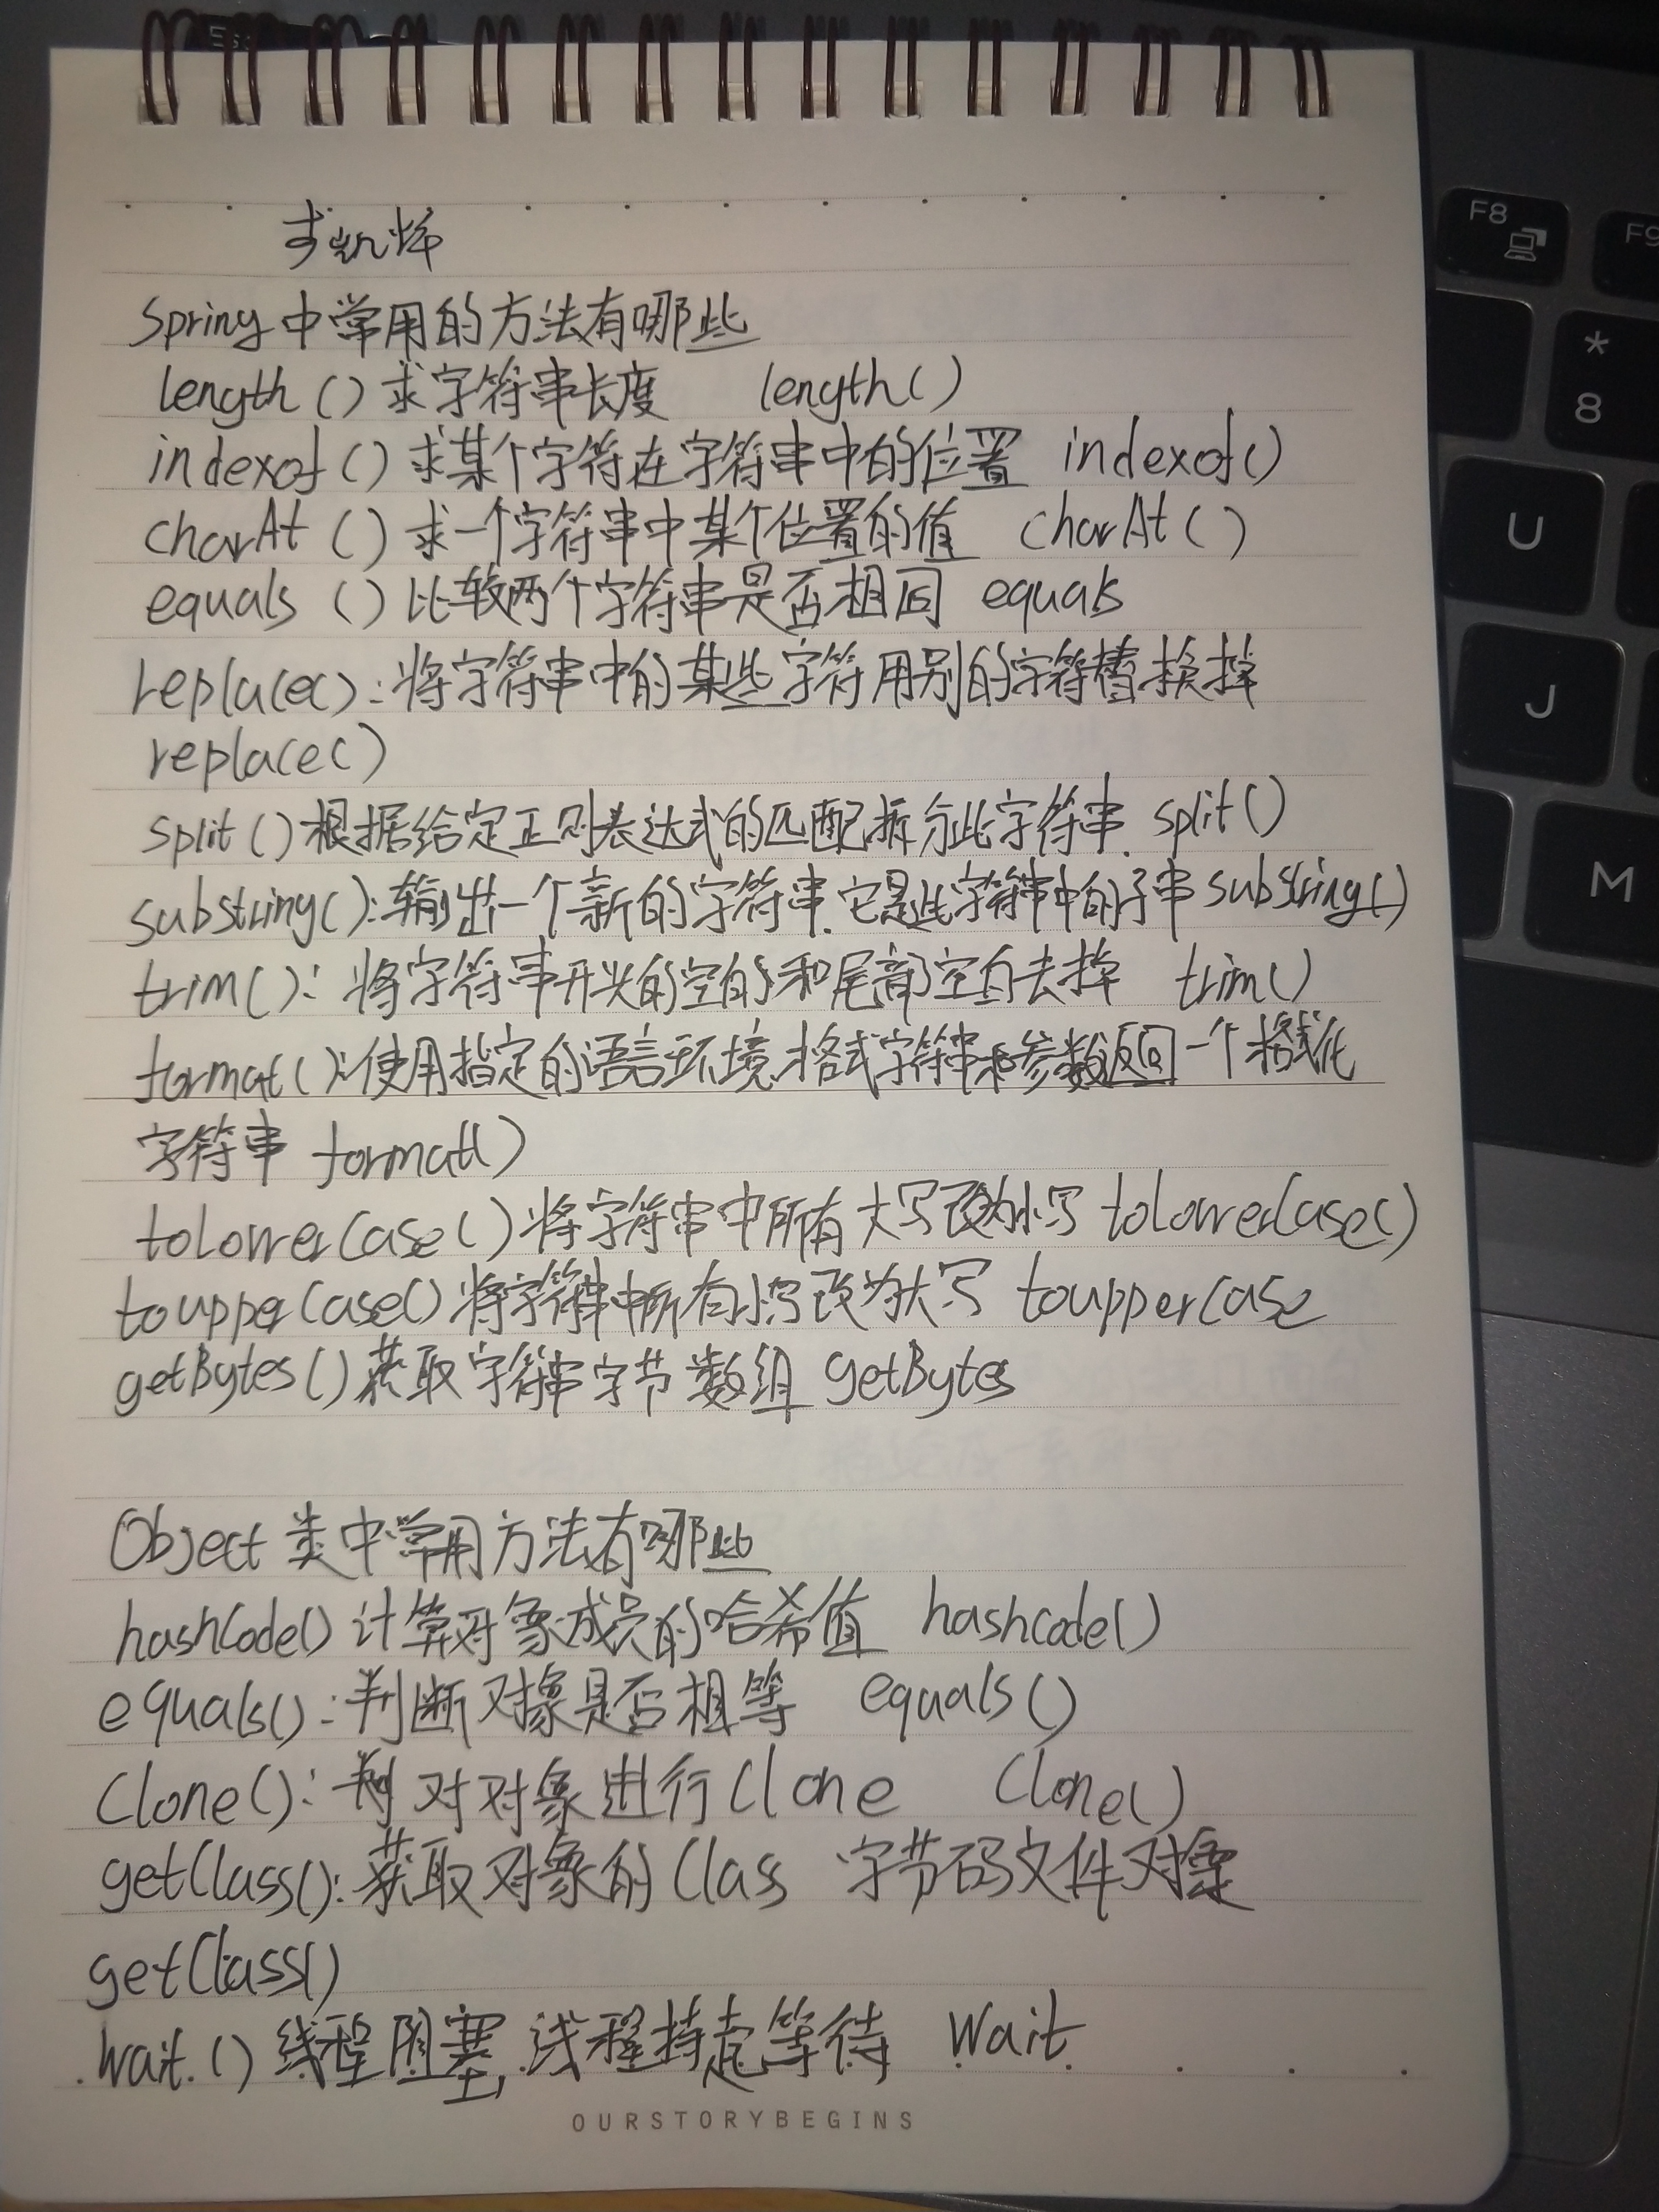 Spring中常用的方法有哪些
length()求字符串长度 length()
indexof()求某个字符在字符串中的位置 indexof()
charAt()求一个字符串中某个位置的值 charAt()
equals()比较两个字符串是否相同 equals
replace():将字符串中的某些字符用别的字符替换掉
replace()
split()根据给定正则表达式的匹配拆分此字符串. split()
substring():输出一个新的字符串.它是此字符串中的子串 substring()
trim():将字符串开头的空白和尾部空白去掉 trim()
format():使用指定的语言环境.格式字符串和参数返回一个格式化
字符串 format()
toLowerCase()将字符串中所有大写改为小写 toLowerCase()
toupperCase()将字符串中所有小写改为大写 toupperCase
getBytes()获取字符串字节数组 getBytes
Object类中常用方法有哪些
hashCode()计算对象成员的哈希值 hashCode()
equals():判断对象是否相等 equals()
Clone(): 对对象进行Clone Clone()
getClass():获取对象的Class 字节码文件对象
getClass()
Wait.()线程阻塞,线程持起等待 Wait.
OURSTORYBEGINS
F8
F9
*
8
U
J
M